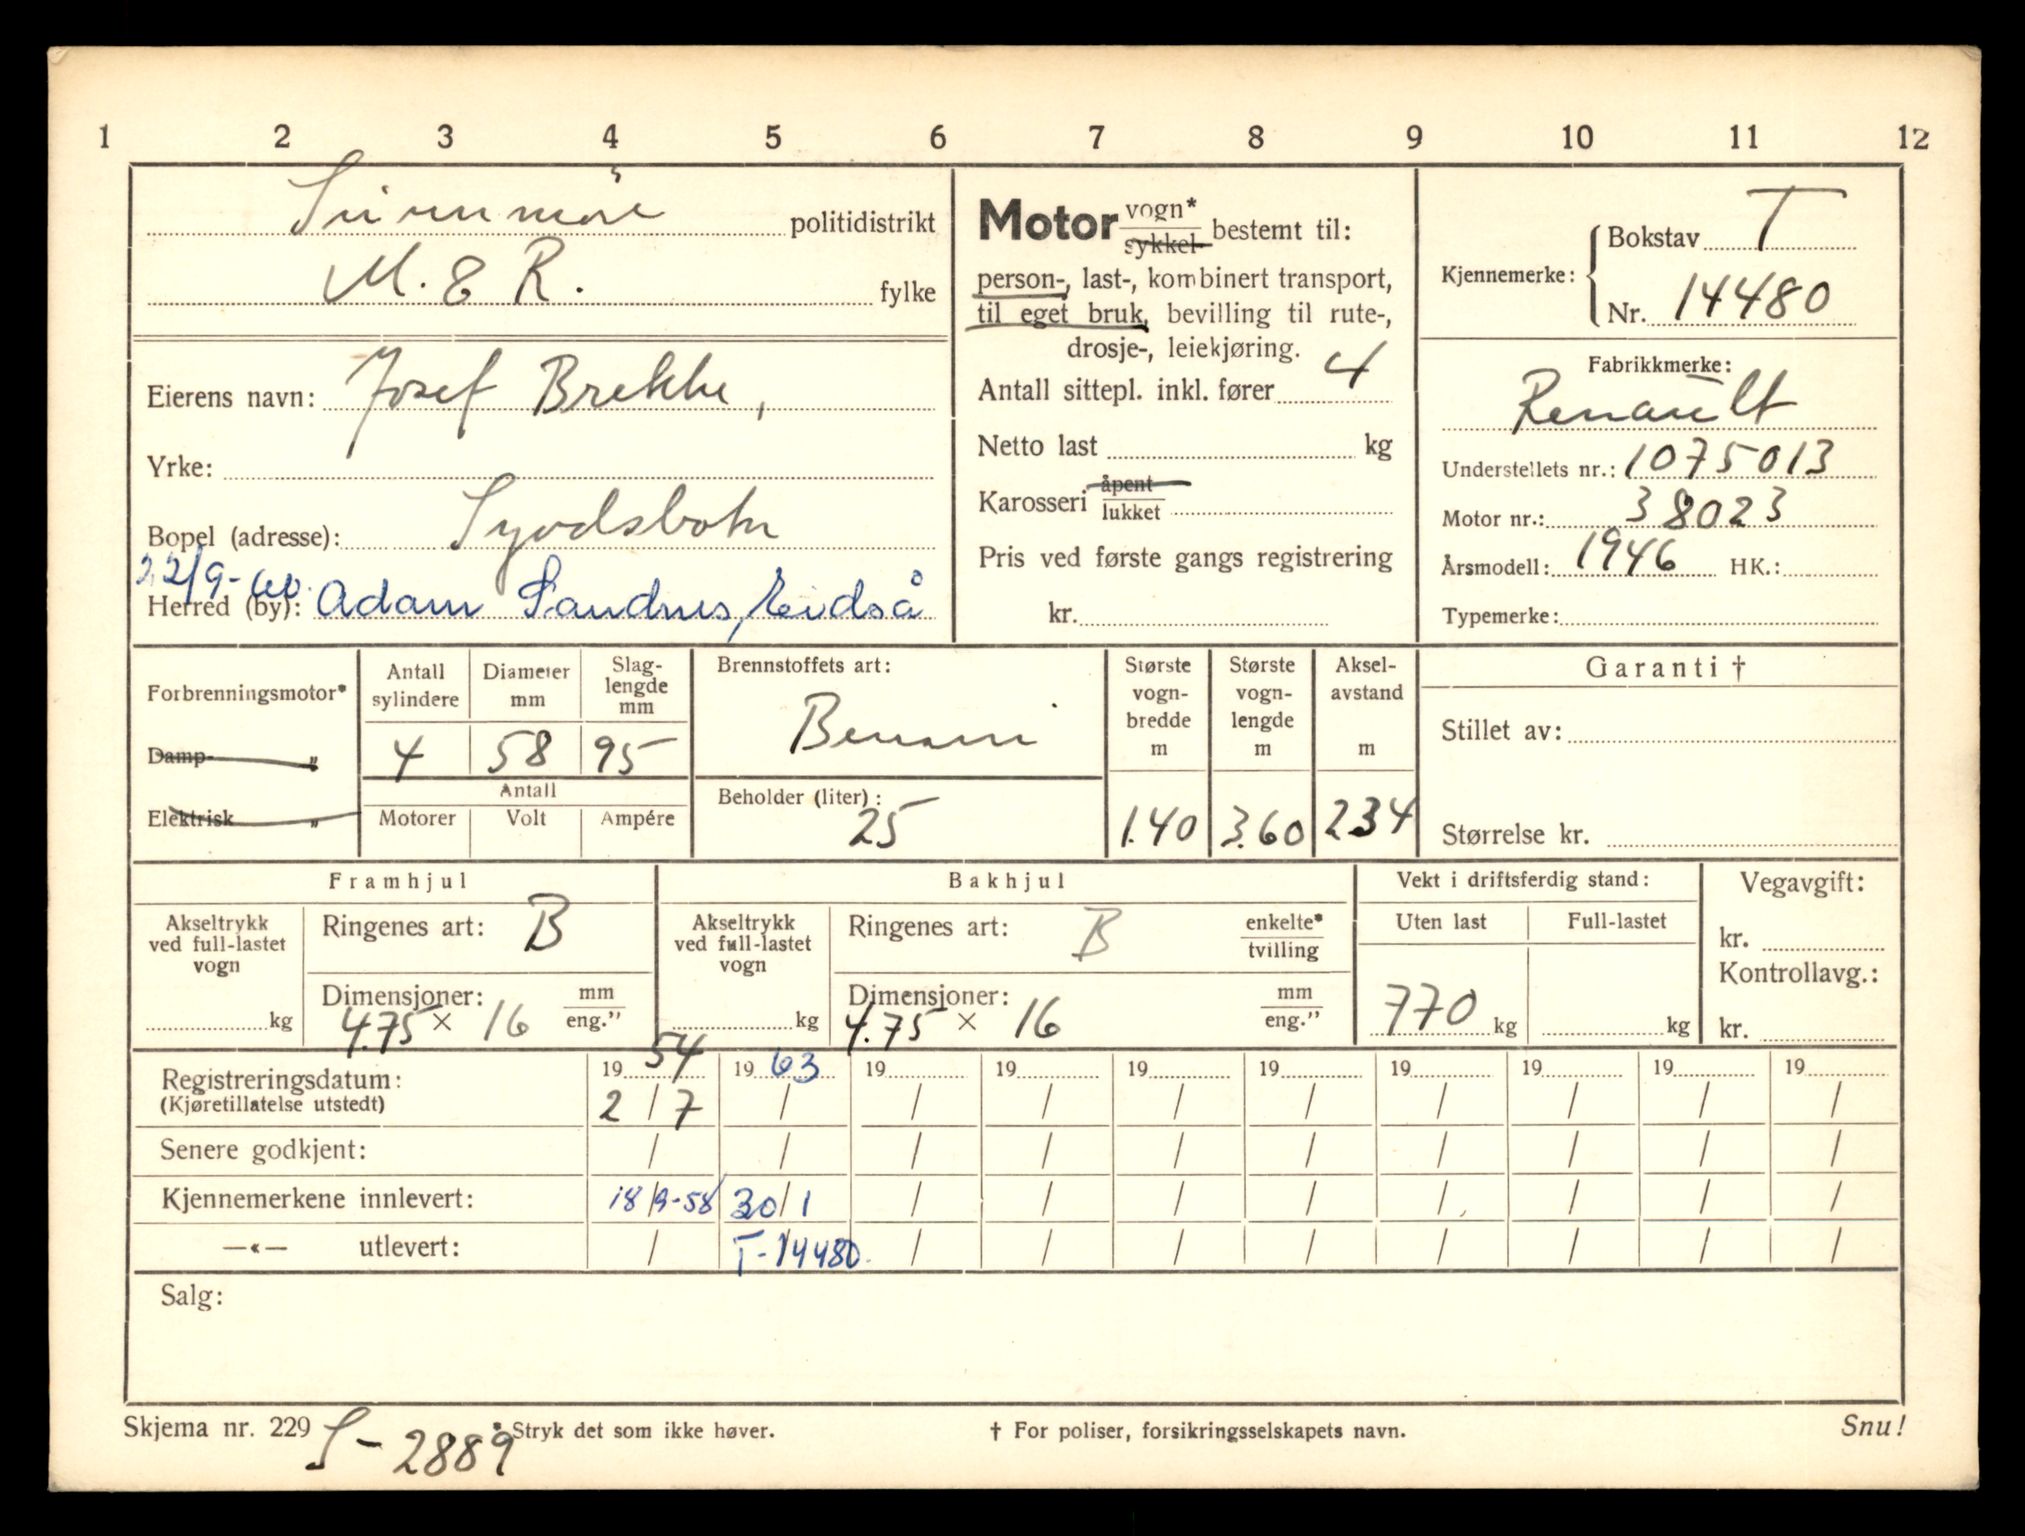 1 2 3 4 5 6 7 8 9 10 11 12
Sunnmøre politidistrikt
M. & R. fylke
Eierens navn: Josef Brekke,
Yrke:
Bopel (adresse): Syvdsbotn
22/9-60.
Herred (by): Adam Sandnes, Eidså
Motor vogn* / sykkel- bestemt til:
person-, last-, kombinert transport,
til eget bruk, bevilling til rute-,
drosje-, leiekjøring.
Antall sittepl. inkl. fører 4
Netto last kg
Karosseri åpent / lukket
Pris ved første gangs registrering
kr.
Kjennemerke: Bokstav T
Nr. 14480
Fabrikkmerke:
Renault
Understellets nr.: 1075013
Motor nr.: 38023
Årsmodell: 1946 HK.:
Typemerke:
Forbrenningsmotor*
Damp- „
Elektrisk „
Antall sylindere Diameter mm Slag-lengde mm
4 58 95
Antall
Motorer Volt Ampére
Brennstoffets art:
Bensin
Beholder (liter):
25
Største vogn-bredde m Største vogn-lengde m Aksel-avstand m
1.40 3.60 2.34
Garanti †
Stillet av:
Størrelse kr.
Framhjul
Akseltrykk ved full-lastet vogn
kg
Ringenes art: B
Dimensjoner: mm / eng."
4.75 × 16
Bakhjul
Akseltrykk ved full-lastet vogn
kg
Ringenes art: B enkelte* / tvilling
Dimensjoner: mm / eng."
4.75 × 16
Vekt i driftsferdig stand:
Uten last Full-lastet
770 kg kg
Vegavgift:
kr.
Kontrollavg.:
kr.
Registreringsdatum: 1954 1963 19 19 19 19 19 19 19 19
(Kjøretillatelse utstedt) 2/7 / / / / / / / / /
Senere godkjent: / / / / / / / / / /
Kjennemerkene innlevert: 18/9-58 30/1 / / / / / / / /
—«— utlevert: / T-14480. / / / / / / / /
Salg:
Skjema nr. 229 * Stryk det som ikke høver. † For poliser, forsikringsselskapets navn. Snu!
S-2889